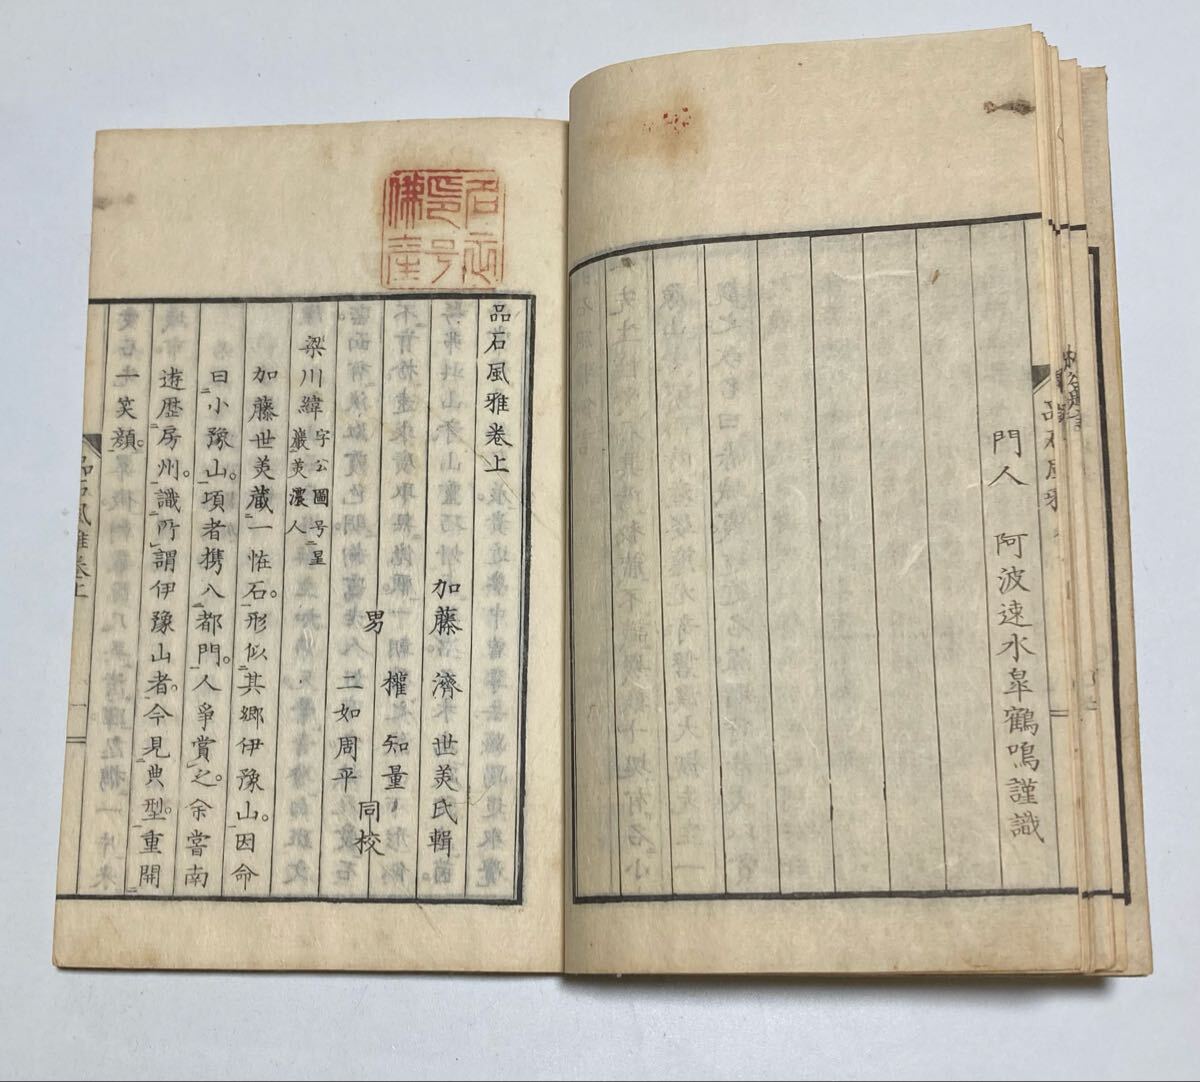 門人 阿波速水皐鶴鳴謹識
品石風雅卷上
加藤濟世美氏輯
男 權知量
二如周平 同校
梁川緯 字公圖号星巖美濃人
加藤世美蔵一怪石。形似其郷伊豫山。因命
曰小豫山。頃者携入都門。人爭賞之。余嘗南
遊歴房州。識所謂伊豫山者。今見典型。重開
一笑顔。
品石風雅卷上 一